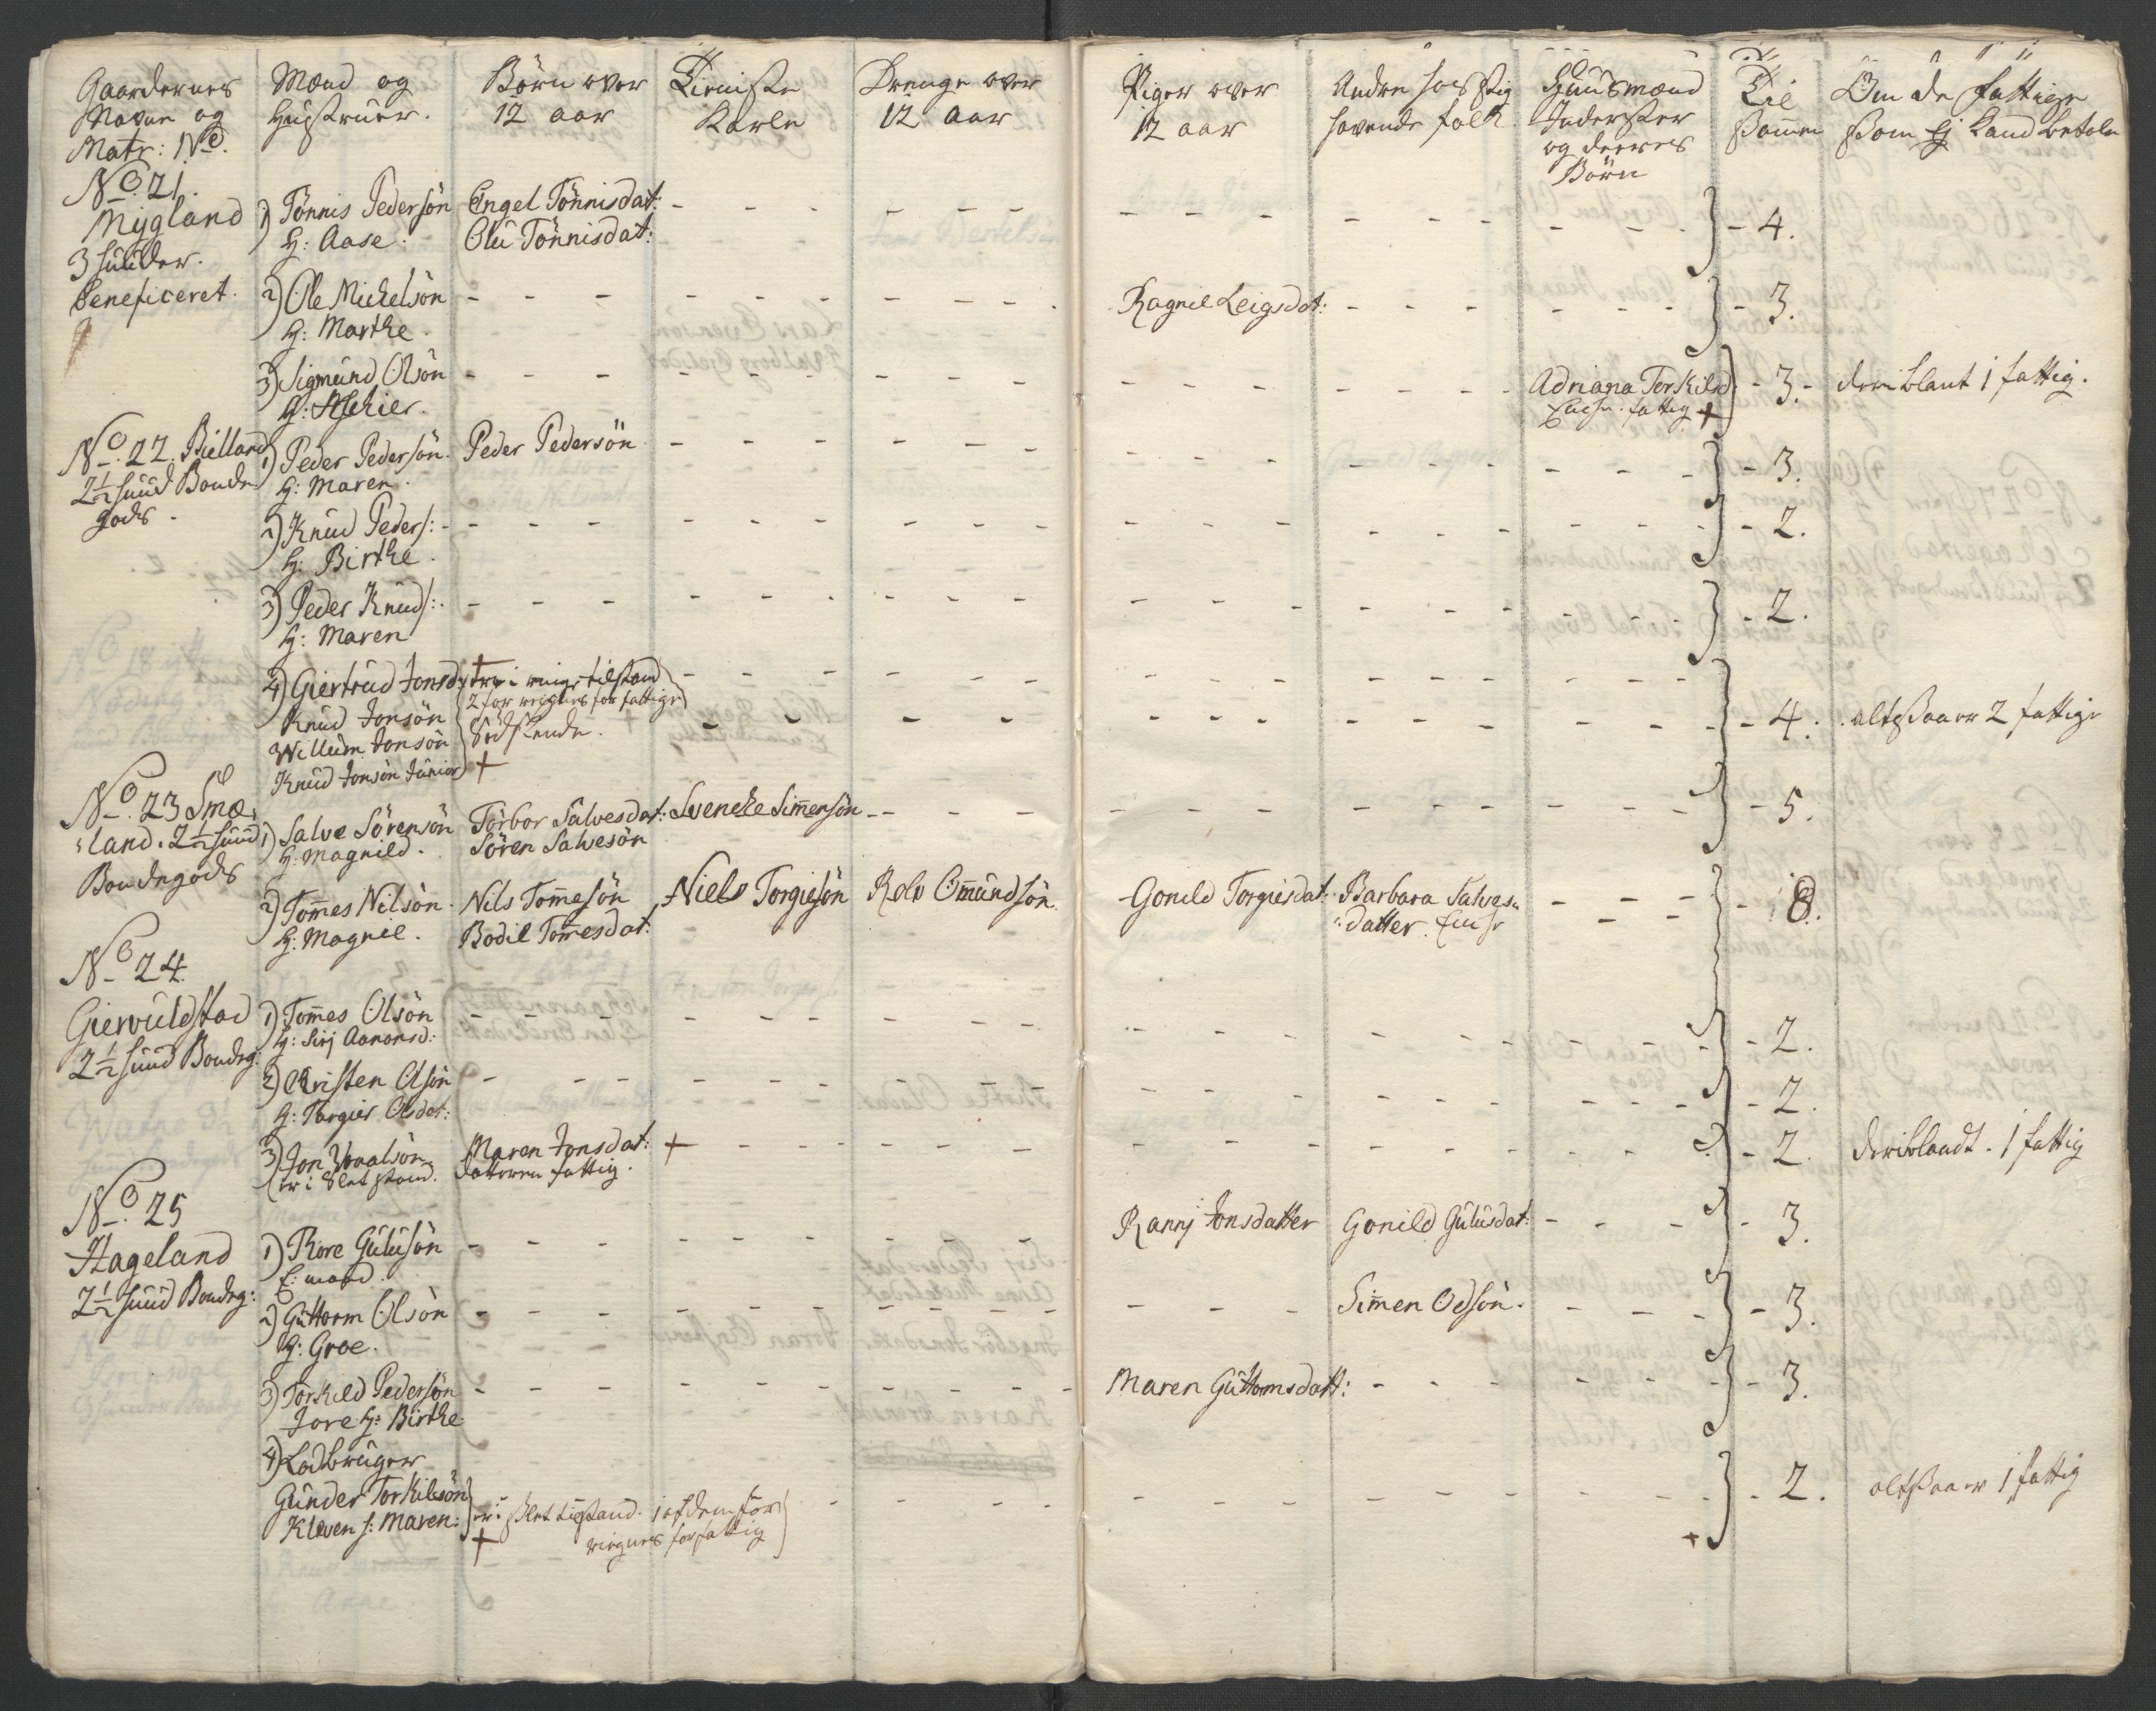 Gaardernes
Navne og
Matr: No.
Mænd og
Hustruer.
Börn over
12 aar
Tieniste
Karle
Drenge over
12 aar
Piger over
12 aar
Andre hos sig
havende folk
Huusmænd
Inderster
og deeres
Börn
Til
Sam̄en
Om de fattige
som ej kand betale
No. 21.
Mÿgland
3 huuder.
beneficeret.
1) Tönnis Pedersön
H: Aase.
Engel Tönnisdat:
Olu Tönnisdat:
4.
2) Ole Michelsön
H: Marthe.
Ragnil Leigsdat:
3.
3) Sigmund Olsön
H: Aschier.
Adriana Torkilsd
fattig +
3. deriblant 1 fattig.
No. 22. Bielland
2½ huud Bonde
gods.
1) Peder Pedersön.
H: Maren.
Peder Pedersön
3.
2) Knud Peders:
H: Birthe.
2.
3) Peder Knuds:
H: Maren
2.
4) Giertrud Jonsd:
Knud Jonsön
Willum Jonsön
Knud Jonsön Junior
+ er i ringe tilstand
2 for regnes for fattige
Södskende.
+
4. altsaa er 2 fattige
No. 23 Smæ,
land. 2½ huud
Bondegods
1) Salve Sörensön
H: Magnild.
Torbor Salvesdat:
Sören Salvesön
Svenche Sim̄ensön
5.
2) Tom̄es Nilsön.
H: Magnil.
Nils Tom̄esön
Bodil Tom̄esdat:
Niels Torgiesön
Rolv Om̄undsön
Gonild Torgiesdat:
Barbara Salves
datter.
8.
No. 24.
Gieruldstad
2½ huud Bondeg:
1) Tom̄es Olsön
H: Sirj Aanonsd:
2.
2) Christen Olsön
H: Torgier Olsdat:
2.
3) Jon
er i Slet stand.
Maren Jonsdat: +
datteren fattig.
2. deriblandt. 1 fattig
No. 25
Hageland
2½ huud Bondeg:
1) Rore Gulusön
E: mand.
Ranj Jonsdatter
Gonild Gulusdat:
3.
2) Guttorm Olsön
H: Groe.
Simen Odsön.
3.
3) Torkild Pedersön
Jore H: Birthe
Maren Guttormsdatt:
3.
4) Lodbruger
Gunder Torkilsön
Kleven H: Maren:
er i slet tilstand. 1 af dem for
reignes for fattig
+
2. altsaa er 1 fattig
+